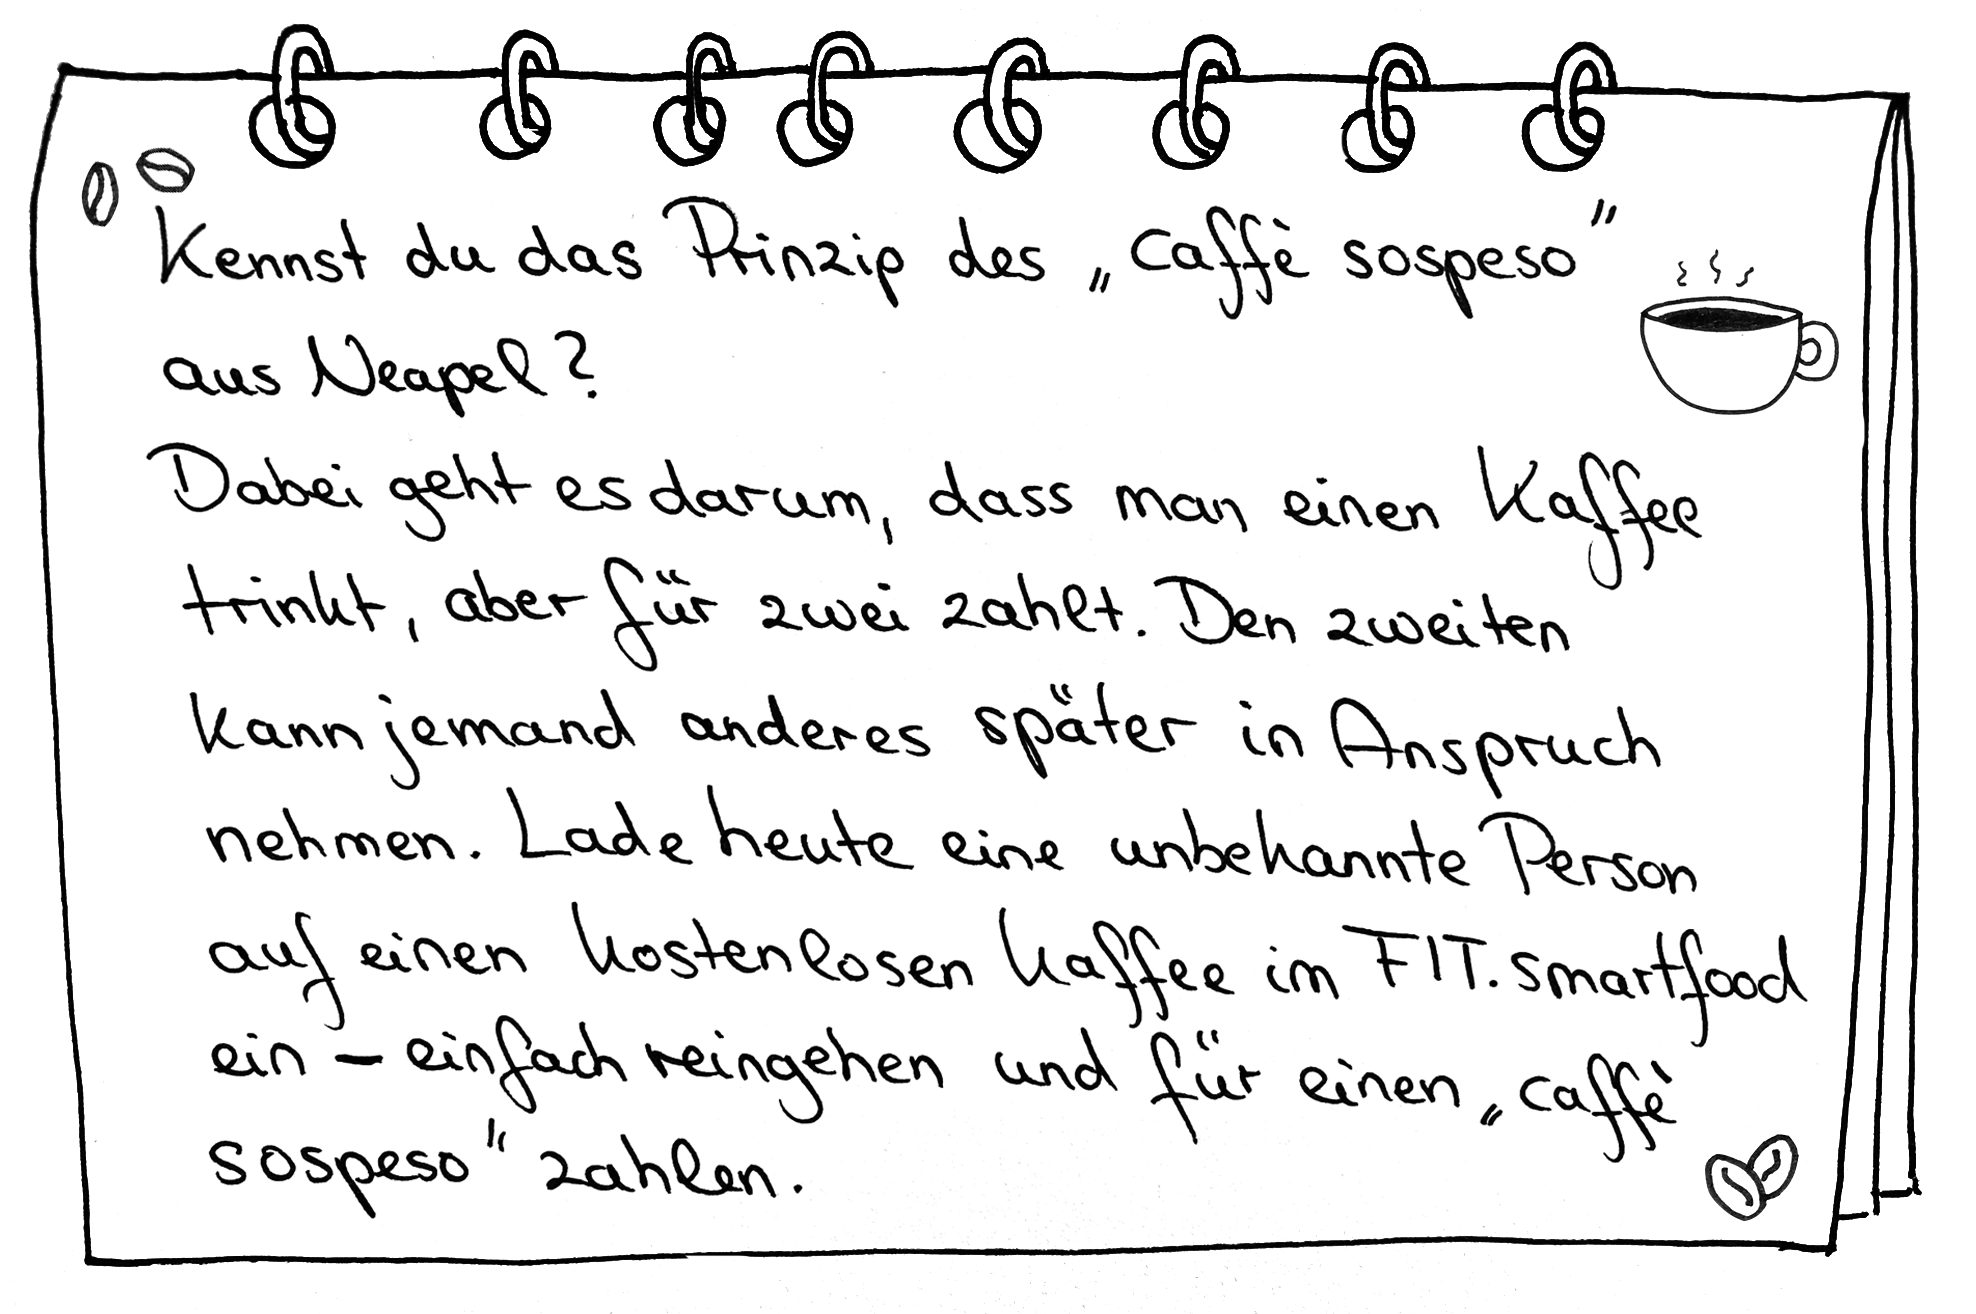 Kennst du das Prinzip des „caffè sospeso"
aus Neapel?
Dabei geht es darum, dass man einen Kaffee
trinkt, aber für zwei zahlt. Den zweiten
kann jemand anderes später in Anspruch
nehmen. Lade heute eine unbekannte Person
auf einen kostenlosen Kaffee im FIT.smartfood
ein – einfach reingehen und für einen „caffè
sospeso" zahlen.